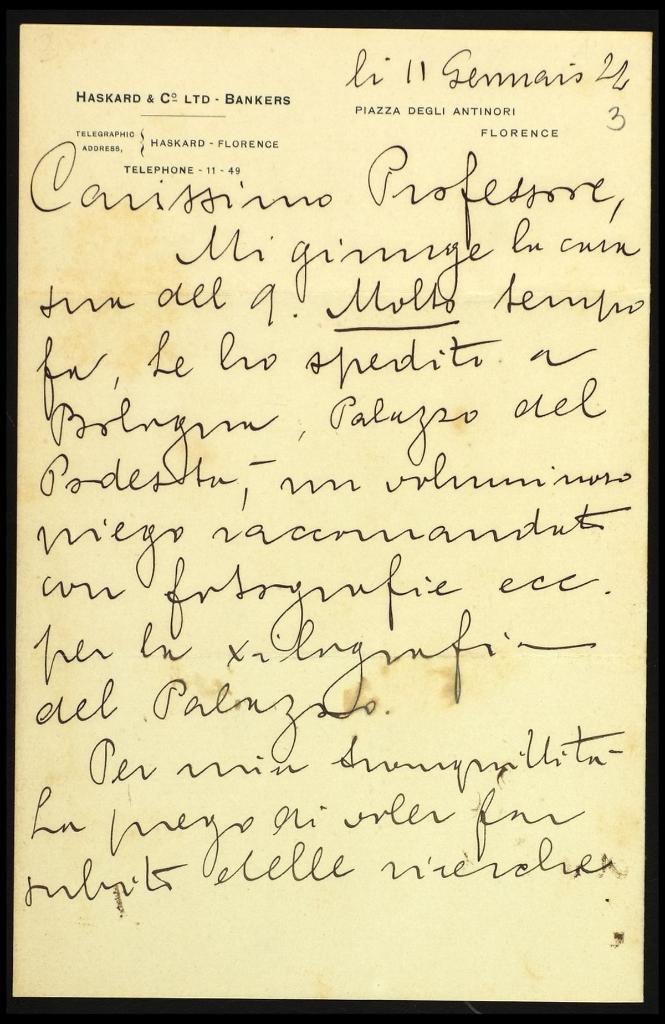 li 11 Gennaio 24
HASKARD & Cº LTD - BANKERS
PIAZZA DEGLI ANTINORI
3
FLORENCE
TELEGRAPHIC ADDRESS, HASKARD - FLORENCE
TELEPHONE - 11 - 49
Carissimo Professore,
Mi giunge la cara
sua del 9. Molto tempo
fa, Le ho spedito a
Bologna, Palazzo del
Podestà, un voluminoso
piego raccomandato
con fotografie ecc.
per la xilografia
del Palazzo.
Per mia tranquillità
La prego di voler far
subito delle ricerche